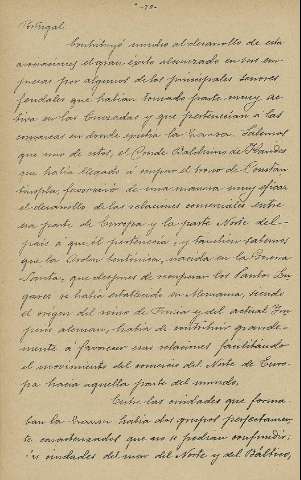 -70-
Portugal.
Contribuyó mucho al desarrollo de esta
el gran éxito alcanzado en sus em-
presas por algunos de los principales señores
feudales que habían tomado parte muy ac-
tiva en las Cruzadas y que pertenecían a las
comarcas en donde existía la Hansa. Sabemos
que uno de estos, el Conde Balduino de Flandes
que había llegado á ocupar el trono de Constan-
tinopla, favoreció de una manera muy eficaz
el desarrollo de las relaciones comerciales entre
esa parte de Europa y la parte Norte del
país a que él pertenecía, y también sabemos
que la Orden teutónica, nacida en la Tierra
Santa, que después de recuperar los Santos Lu-
gares se había establecido en Alemania, siendo
el origen del reino de Prusia y del actual Im-
perio alemán, había de contribuir grande-
mente á favorecer esas relaciones facilitando
el movimiento del comercio del Norte de Euro-
pa hacia aquella parte del mundo.
Entre las ciudades que forma-
ban la Hansa había dos grupos perfectamen-
te caracterizados que no se podían confundir:
las ciudades del mar del Norte y del Báltico,